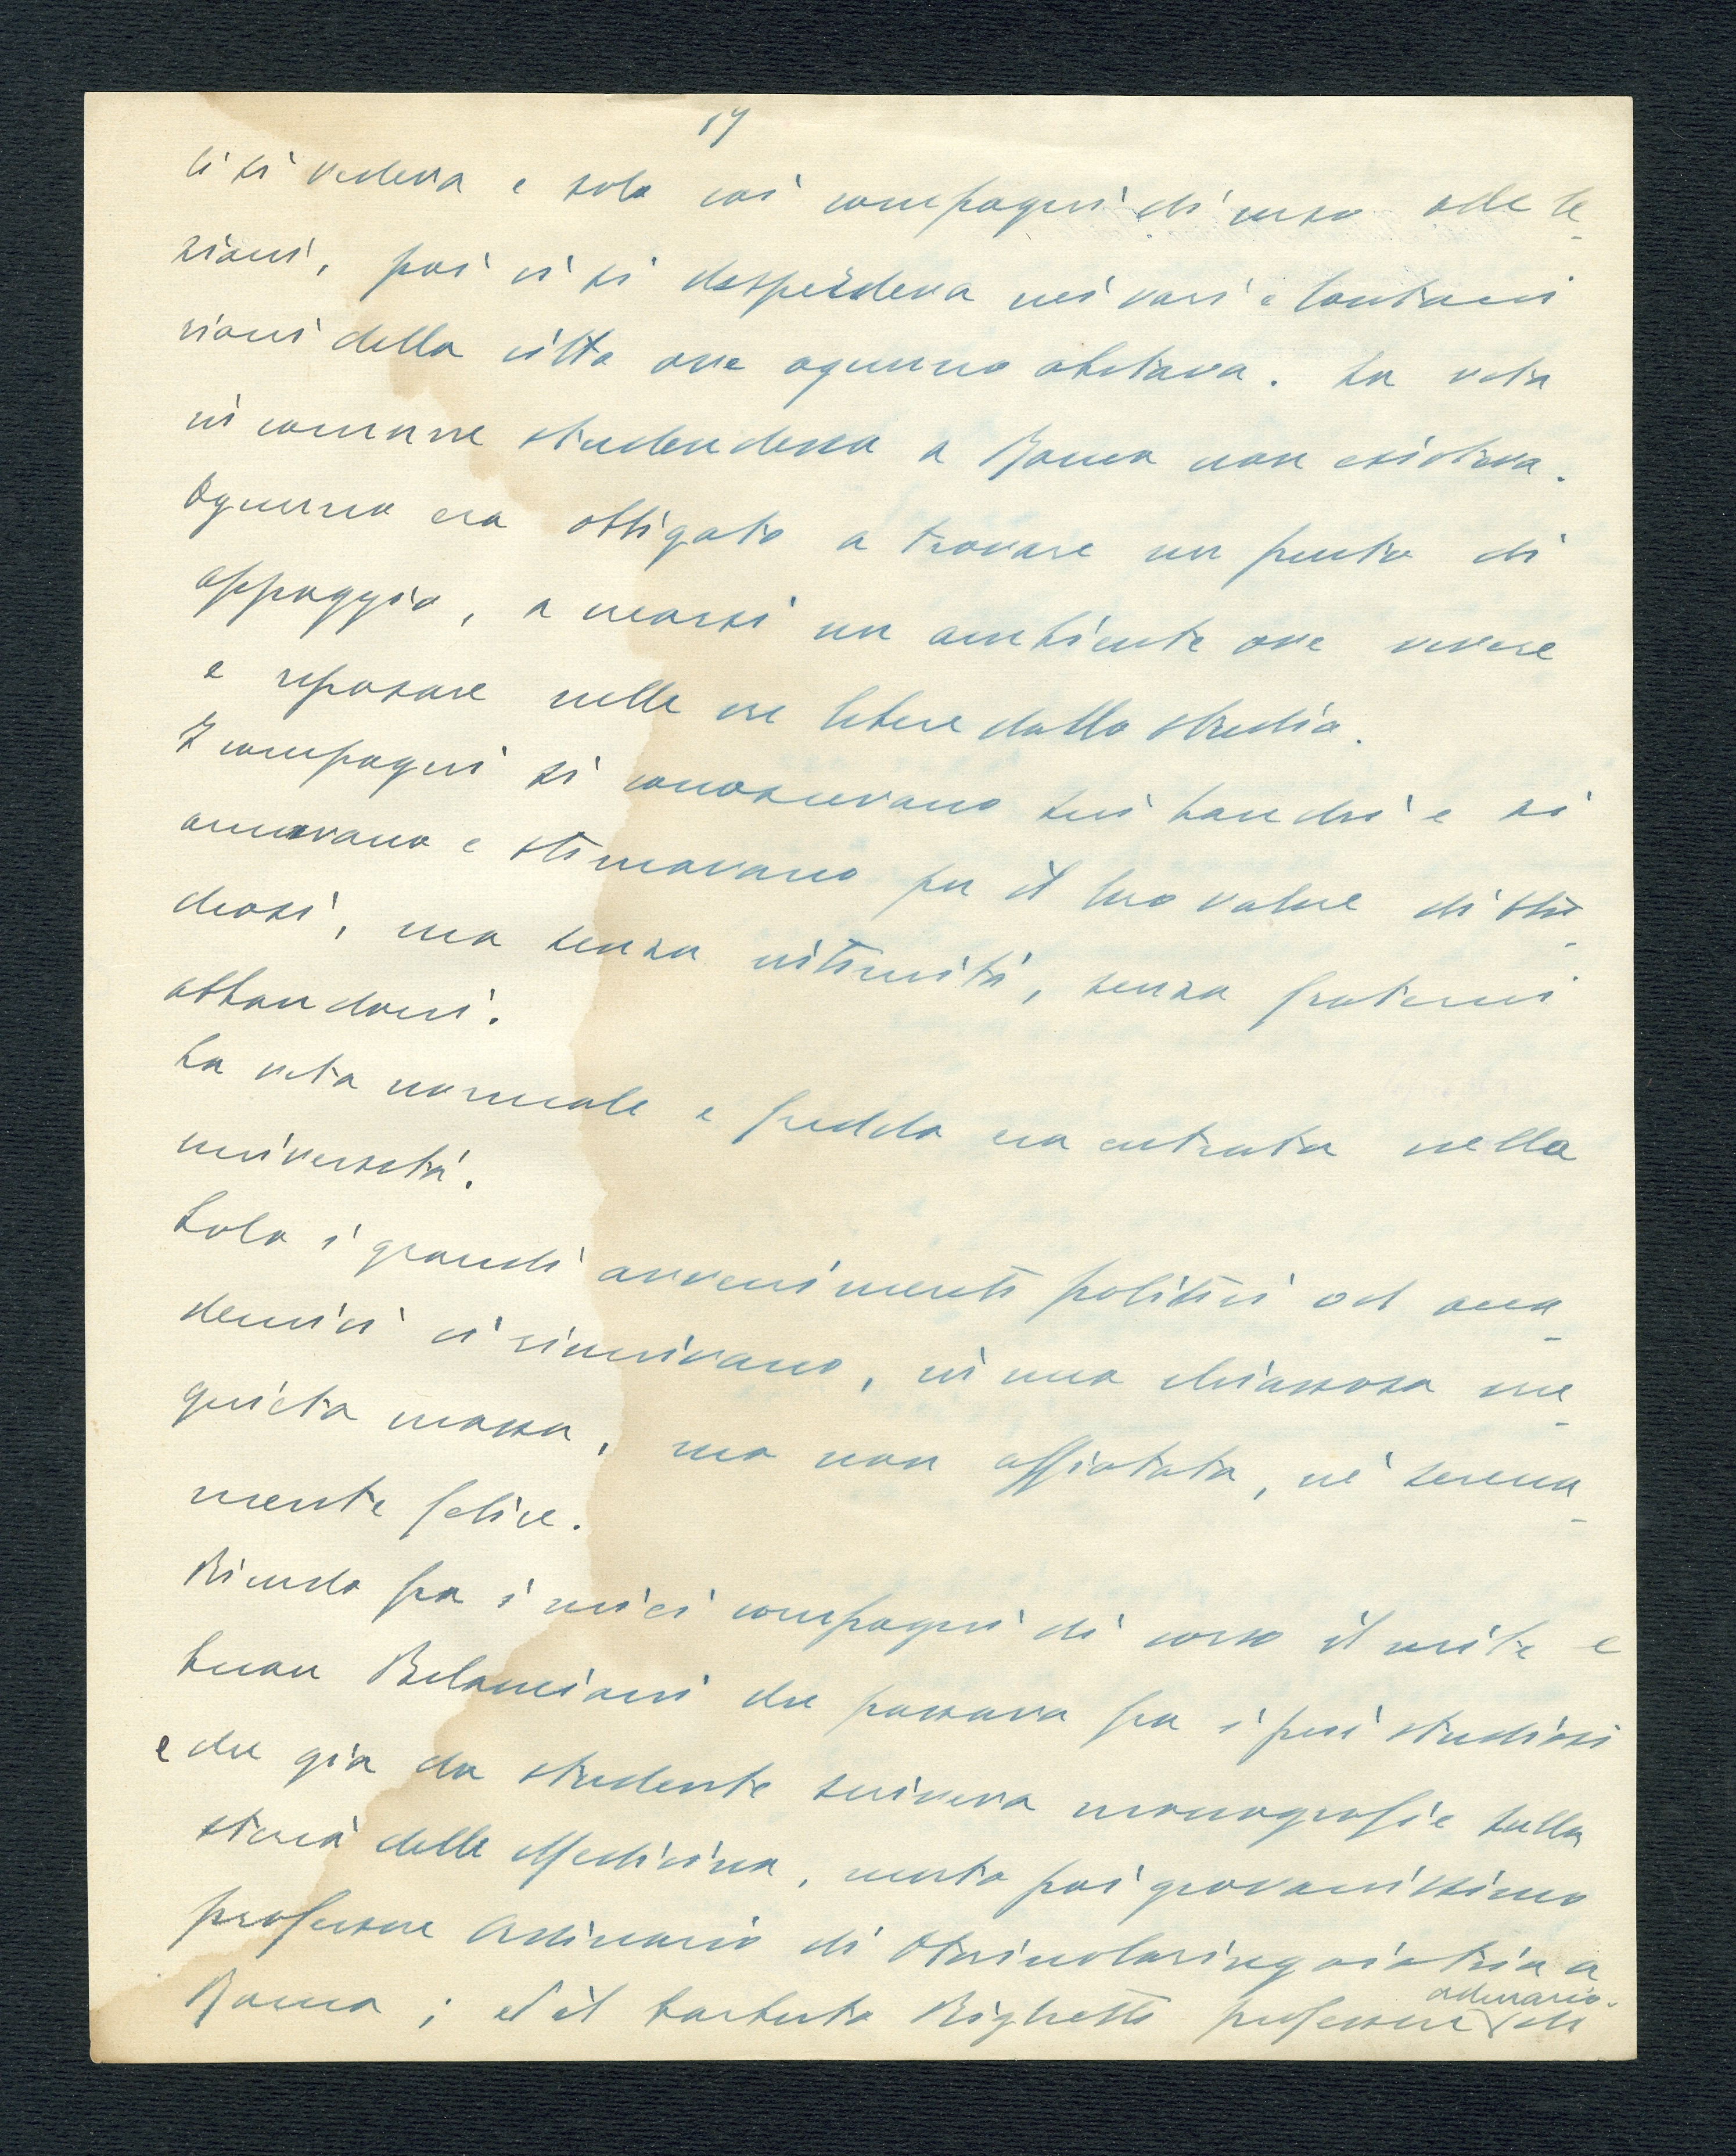 17
Ci si vedeva e solo coi compagni di corso alle le-
zioni, poi ci si disperdeva nei vari e lontani
rioni della città ove ognuno abitava. La vita
in comune studendesca a Roma non esisteva.
Ognuno era obbligato a trovare un punto di
appoggio, a crearsi un ambiente ove vivere
e riposare nelle ore libere dallo studio.
I compagni si conoscevano sui banchi e si
amavano e stimavano per il loro valore di stu-
diosi, ma senza intimità, senza fraterni
abbandoni.
La vita normale e fredda era entrata nella
università.
Solo i grandi avvenimenti politici od acca-
demici ci riunivano, in una chiassosa ine-
quieta massa, ma non affiatata, nè serena-
mente felice.
Ricordo fra i miei compagni di corso il mite e
buon Bilancioni che passava fra i più studiosi
e che già da studente scriveva monografie sulla
storia della Medicina, morto poi giovanissimo
professore Ordinario di Otorinolaringoiatria a
Roma; ed il barbuto Righetti professore ordinario di